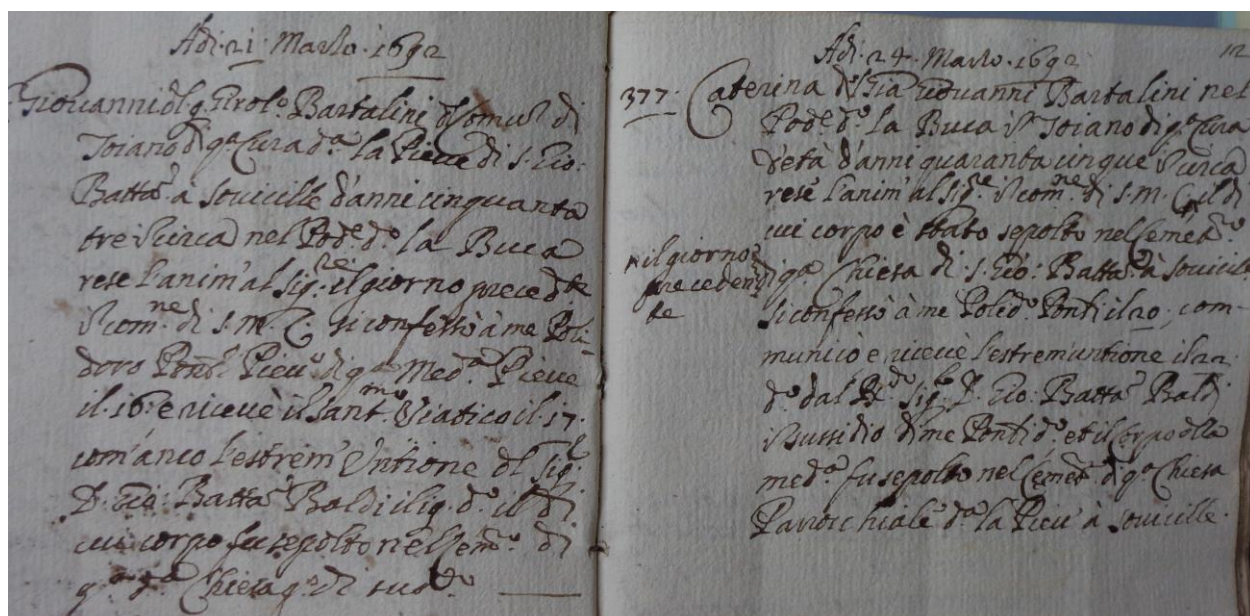 Adi · 21 · Marzo · 1692
Giovanni dl q. Girol.o Bartalini d Comun di
Toiano di q.a Cura d.a la Pieve di S. Gio:
Batta à Sovicille d'anni cinquanta
tre in circa nel Pod.e d.o la Buca
rese l'anim' al Sig.re il giorno preced.te
in com.ne di S. M. C. si confessò à me Poli-
doro Ponti Piev.o di q.a Med.a Pieve
il 16: e ricevè il Sant.mo Viatico il 17
com'anco l'estrem' Untione dl Sig.r
D. Gio: Batta Baldi il 19 d.o il di
cui corpo fu sepolto nel Cem.o di
q.a d.a Chiesa q.o di sud.o
12
Adi · 24 · Marzo · 1692
377 · Caterina d Gia Giovanni Bartalini nel
Pod.e d.o la Buca in Toiano di q.a Cura
d'età d'anni quaranta cinque in circa
rese l'anim' al Sig.re in com.ne di S. M. C. il di
cui corpo è stato sepolto nel Cemet.o
il giorno
preceden
te
di q.a Chiesa di S. Gio: Batta à Sovicille
si confessò à me Polid.o Ponti il 20, com-
municò e ricevè l'estrem'untione il 22
d.o dal R.do Sig.r D. Gio: Batta Baldi
in sussidio di me Ponti d.o et il corpo della
med.a fu sepolto nel Cemet.o di q.a Chiesa
Parochiale d.a la Piev' à Sovicille.